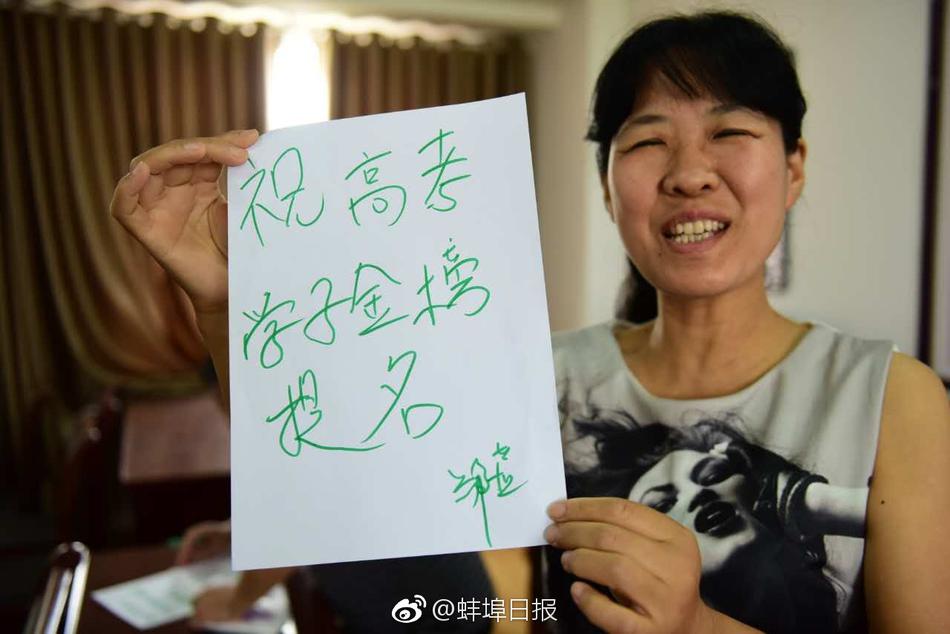 祝高考
学子金榜
提名
@蚌埠日报